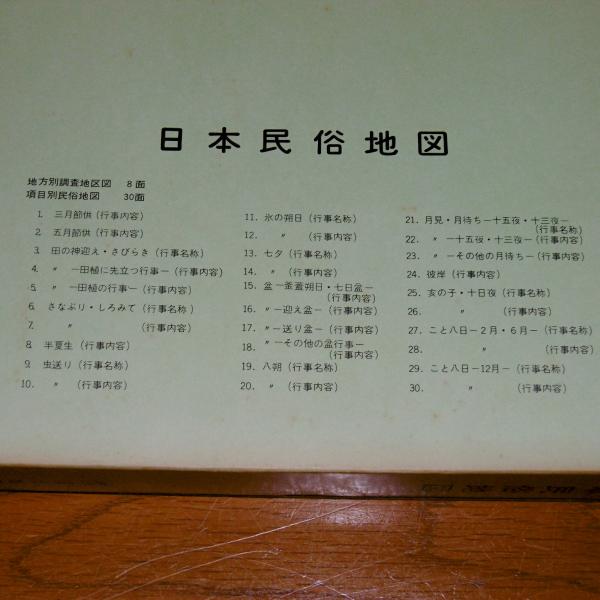 日本民俗地図
地方別調査地区図 8面
項目別民俗地図 30面
1. 三月節供(行事内容)
2. 五月節供(行事内容)
3. 田の神迎え・さびらき(行事名称)
4. 〃 ー田植に先立つ行事ー(行事内容)
5. 〃 ー田植の行事ー(行事内容)
6. さなぶり・しろみて(行事名称)
7. 〃 (行事内容)
8. 半夏生(行事内容)
9. 虫送り(行事名称)
10. 〃 (行事内容)
11. 氷の朔日(行事名称)
12. 〃 (行事内容)
13. 七夕(行事名称)
14. 〃 (行事内容)
15. 盆ー釜蓋朔日・七日盆ー
(行事内容)
16. 〃ー迎え盆ー(行事内容)
17. 〃ー送り盆ー(行事内容)
18. 〃ーその他の盆行事ー
(行事内容)
19. 八朔(行事名称)
20. 〃 (行事内容)
21. 月見・月待ちー十五夜・十三夜ー
(行事名称)
22. 〃 ー十五夜・十三夜ー(行事内容)
23. 〃 ーその他の月待ちー(行事内容)
24. 彼岸(行事内容)
25. 亥の子・十日夜(行事名称)
26. 〃 (行事内容)
27. こと八日ー2月・6月ー(行事名称)
28. 〃 (行事内容)
29. こと八日ー12月ー(行事名称)
30. 〃 (行事内容)